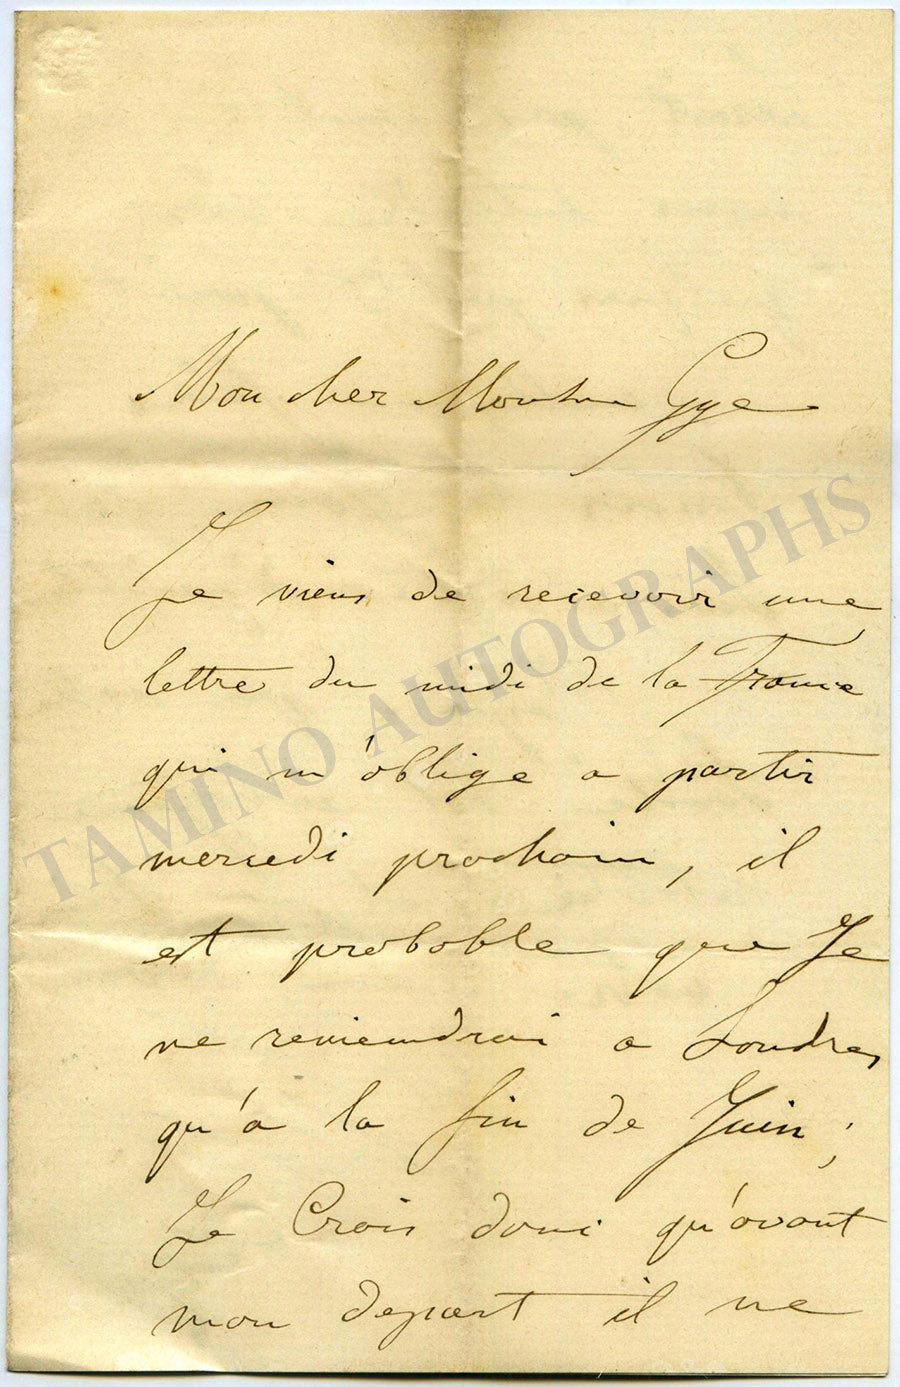 Mon cher Monsieur Gye
Je viens de recevoir une
lettre du midi de la France
qui m'oblige a partir
mercredi prochain, il
est probable que Je
ne reviendrai a Londres
qu'a la fin de Juin ;
Je Crois donc qu'avant
mon depart il ne
TAMINO AUTOGRAPHS